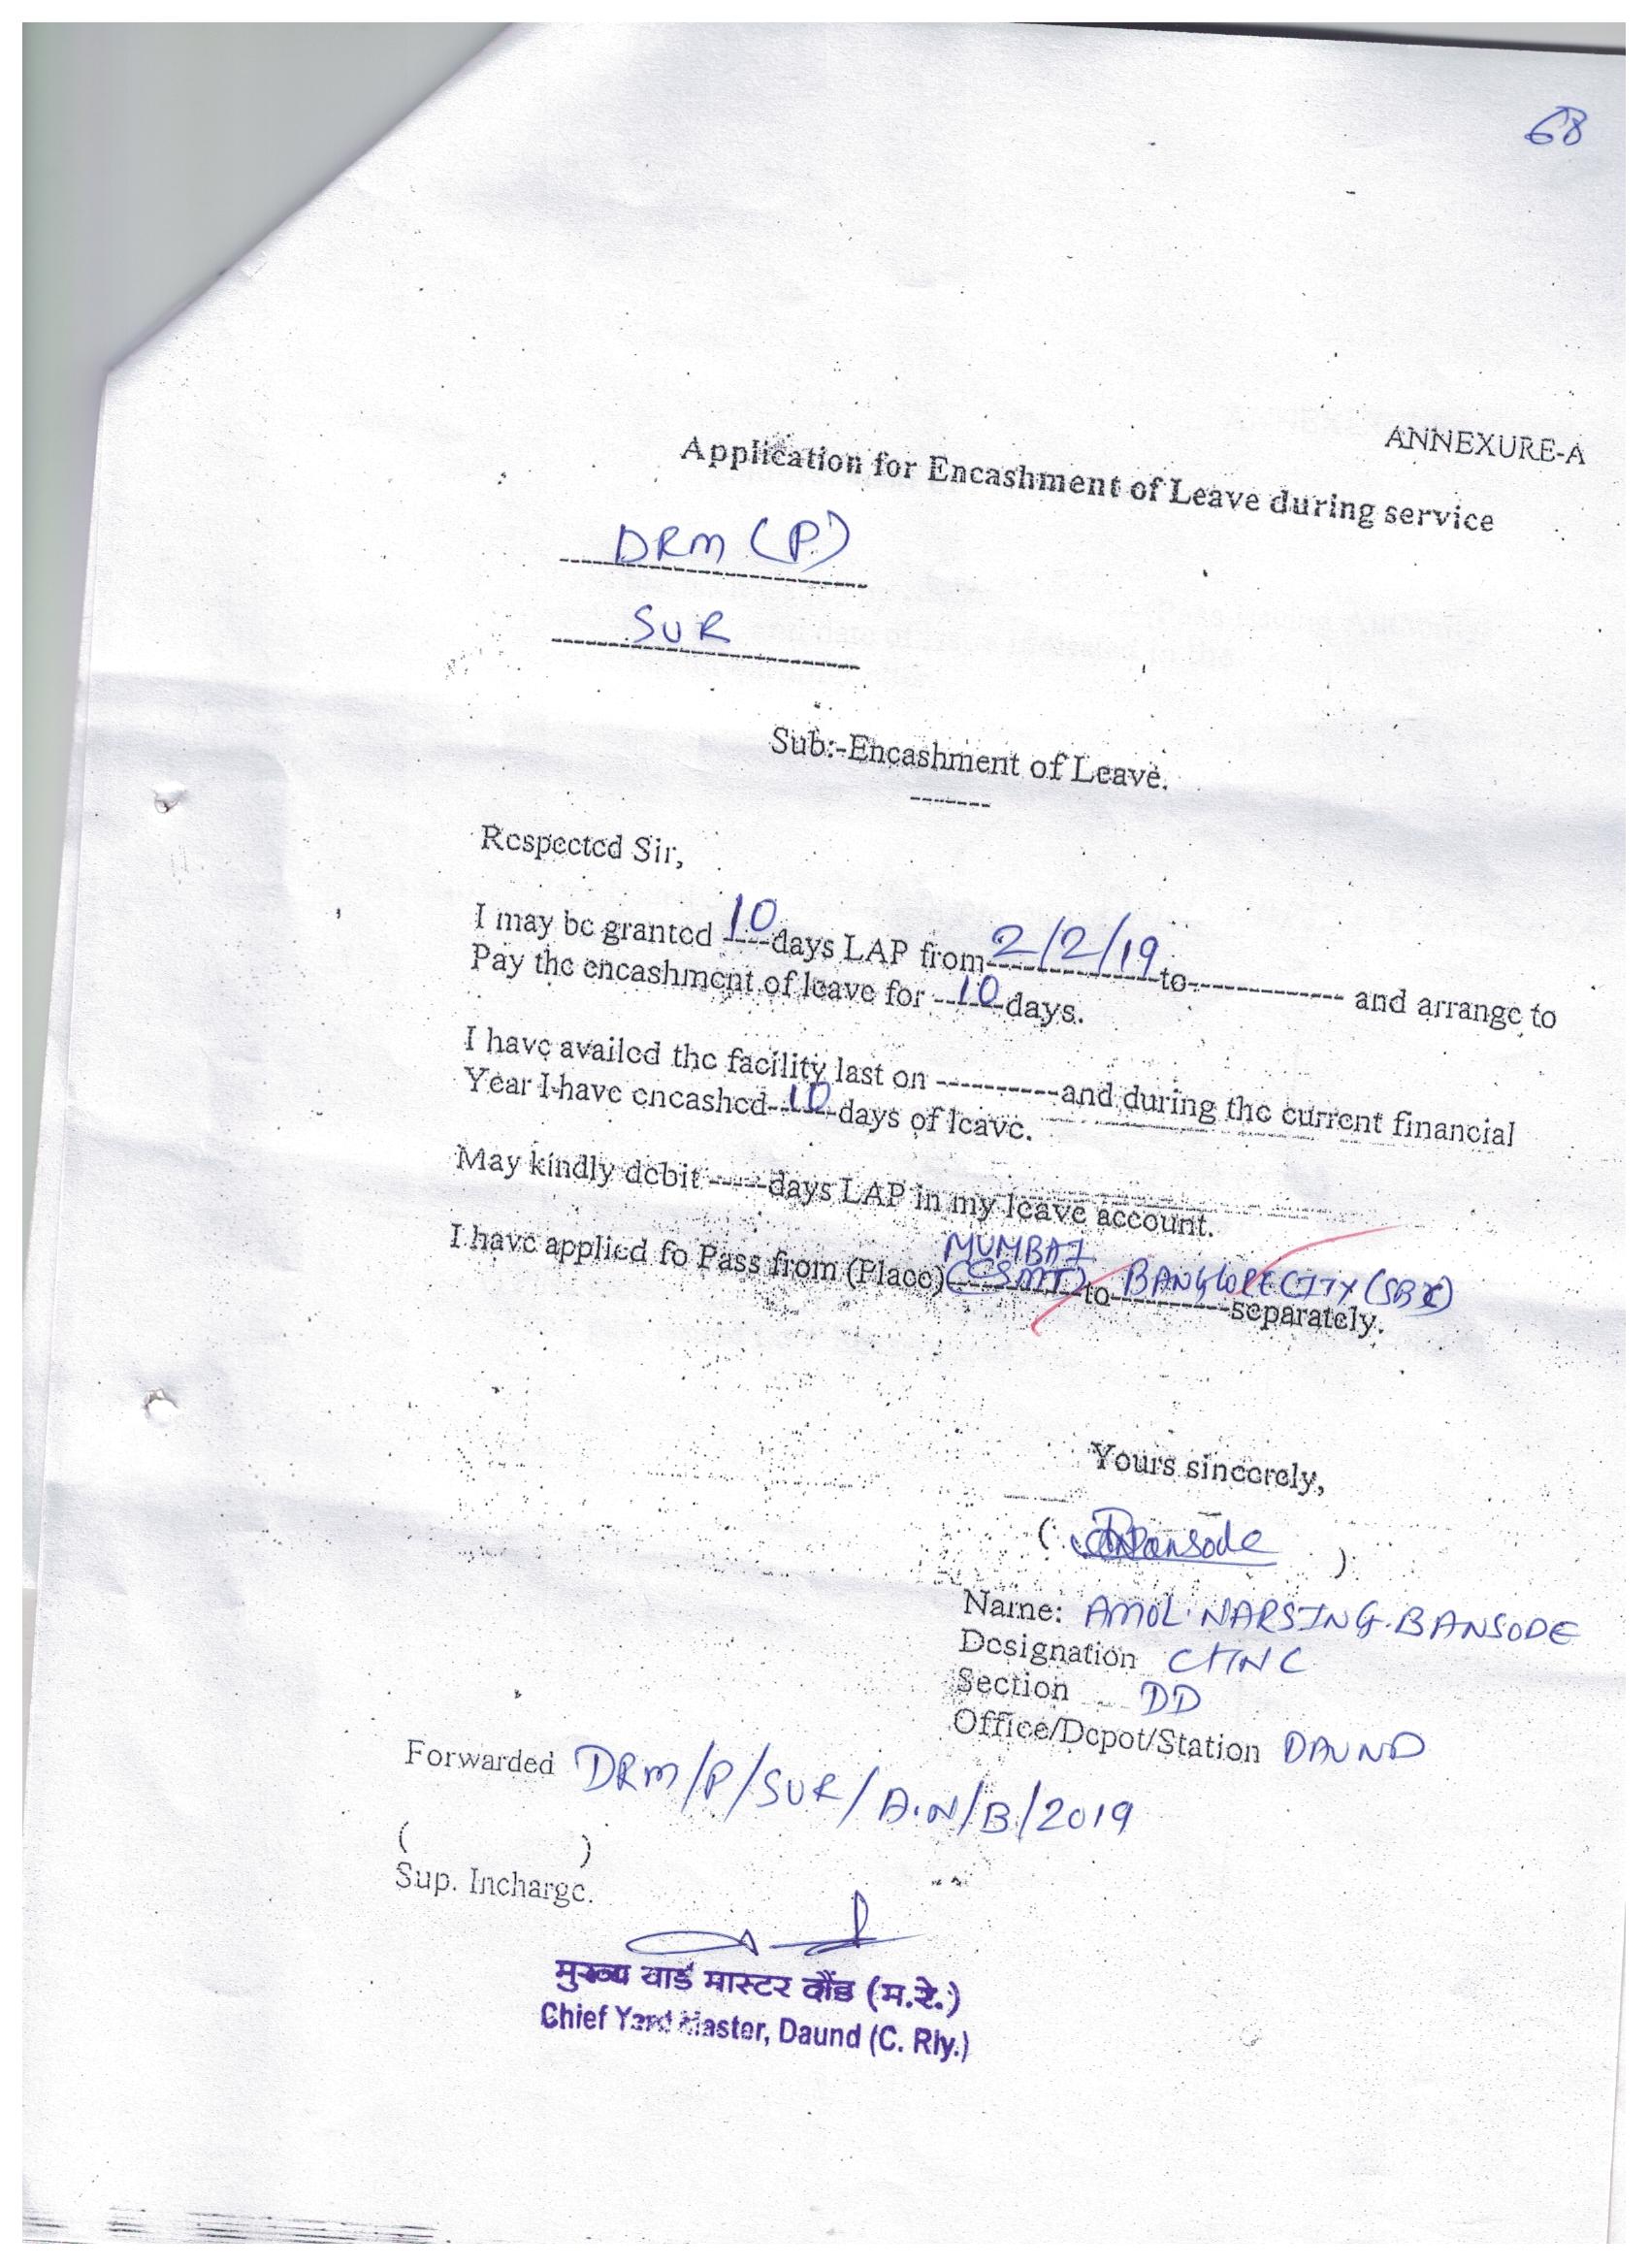 68
ANNEXURE-A
Application for Encashment of Leave during service
DRM (P)
SUR
Sub:-Encashment of Leave.
-------
Respected Sir,
I may be granted 10 days LAP from 2/2/19 to------------ and arrange to
Pay the encashment of leave for 10 days.
I have availed the facility last on ----------and during the current financial
Year I have encashed 10 days of leave.
May kindly debit -----days LAP in my leave account.
MUMBAI
I have applied fo Pass from (Place) (CSMT) to BANGLORE CITY (SBC) separately.
Yours sincerely,
( Bansode )
Name: AMOL. NARSING. BANSODE
Designation
Section DD
Office/Depot/Station DAUND
Forwarded DRM/P/SUR/A.N/B/2019
( )
Sup. Incharge.
मुख्य यार्ड मास्टर दौंड (म.रे.)
Chief Yard Master, Daund (C. Rly.)